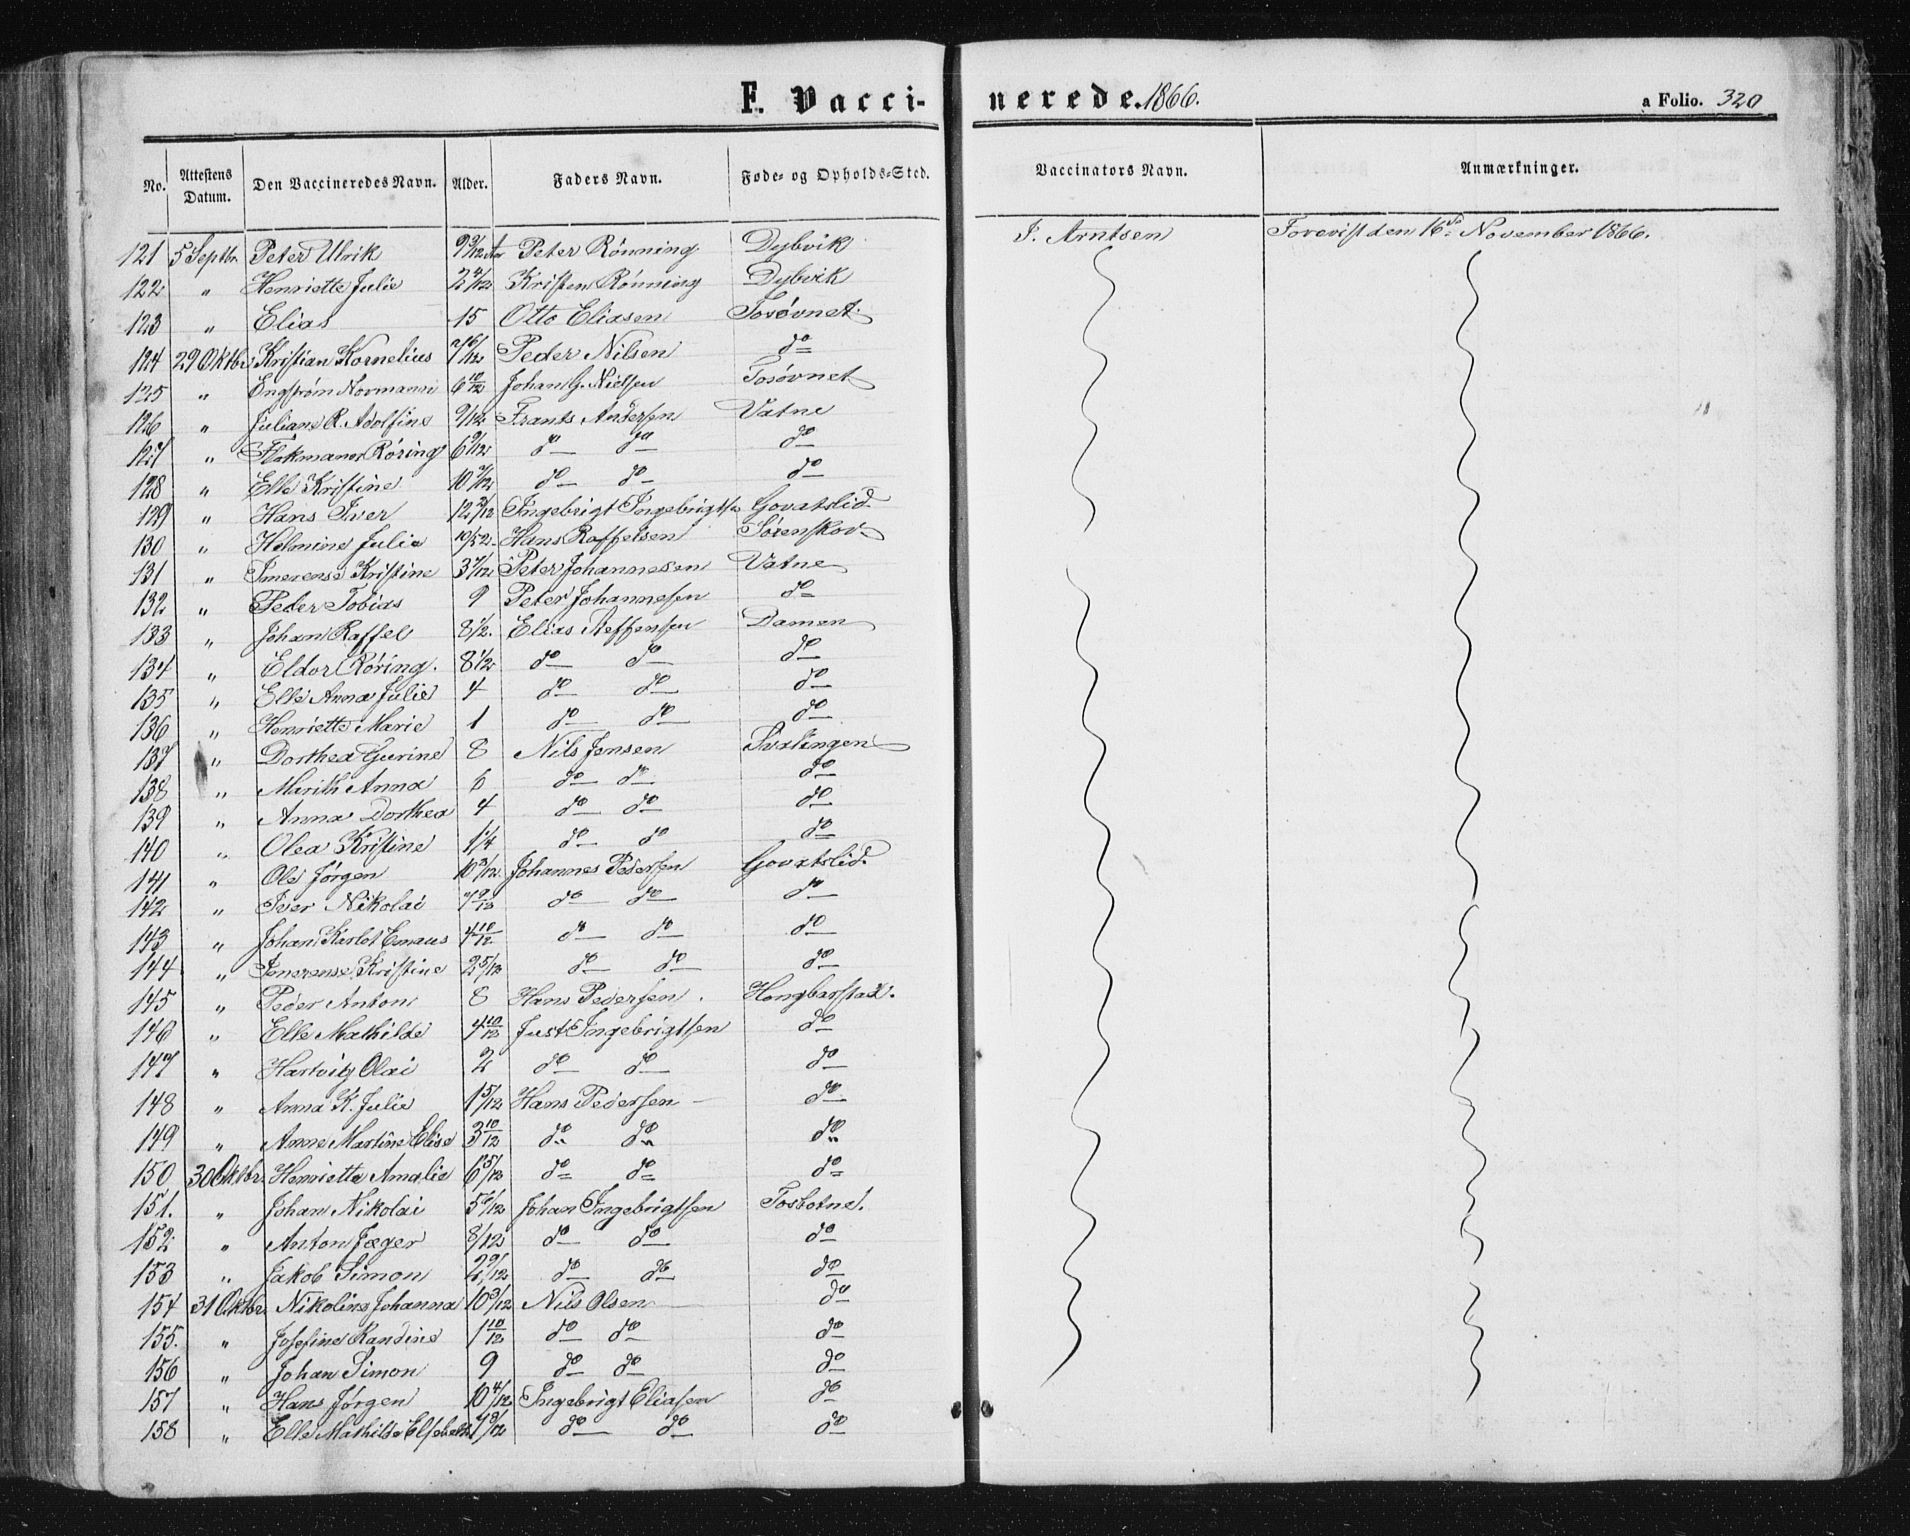 F. Vaccinerede. 1866. a Folio. 320
No. Attestens Datum. Den Vaccineredes Navn. Alder. Faders Navn. Føde- og Opholds-Sted. Vaccinators Navn. Anmærkninger.
121 5 Septbr Peter Ulrik 9 9/12 Aar Peter Rönning Dybvik J. Arntsen Forevist den 16de November 1866.
122 " Henriette Julie 2 4/12 Kristen Rönning Dybvik
123 " Elias 15 Otto Eliasen Tosøvnet
124 29 Oktbr Kristian Kornelius 7 6/12 Peder Nilsen do
125 " Engstrøm Normann 6 10/12 Johan G. Nielsen Tosøvnet
126 " Juliane R. Adolfine 9/12 Frants Andersen Vatne
127 " Røring 6 9/12 do do do
128 " Elle Kristine 10 7/12 do do do
129 " Hans Iver 12 2/12 Ingebrigt Ingebrigts. Govatslid
130 " Helmine Julie 10/52 Hans Raffelsen Sørenskov
131 " Imerense Kristine 3 7/12 Peter Johannesen Vatne
132 " Peder Tobias 9 Peter Johannesen do
133 " Johan Raffel 8 1/2 Elias Steffensen Damen
134 " Eldor Røring. 8 1/2 do do do
135 " Elle Anna Julie 4 do do do
136 " Henriette Marie 1 do do do
137 " Dorthea Gurine 8 Nils Jensen Svartingen
138 " Marith Anna 6 do do do
139 " Anna Dorthea 4 do do do
140 " Olea Kristine 1 1/4 do do do
141 " Ole Jørgen 10 3/12 Johannes Pedersen Govatslid
142 " Iver Nikolai 7 9/12 do do do
143 " Johan Karlot Emaus 4 10/12 do do do
144 " Imerense Kristine 2 5/12 do do do
145 " Peder Anton 8 Hans Pedersen. Hongbarstad.
146 " Elle Mathilde 4 10/12 Just Ingebrigtsen do
147 " Hartvig Olai 2 do do do
148 " Anna K. Julie 1 5/12 Hans Pedersen do
149 " Anne Martine Elise 3 10/12 do do do
150 30 Oktbr. Henriette Amalie 6 5/12 do do do
151. " Johan Nikolai 5 6/12 Johan Ingebrigtsen Tosbotne.
152 " Anton Jæger 8/12 do do do
153 " Jakob Simon 2 9/12 do do do
154 31 Oktbr. Nikoline Johanna 10 3/12 Nils Olsen do
155. " Josefine Randine 1 10/12 do do do
156 " Johan Simon 9 do do do
157 " Hans Jørgen 10 4/12 Ingebrigt Eliasen do
158 " Elle Mathilde Elsebeth 7 9/12 do do do